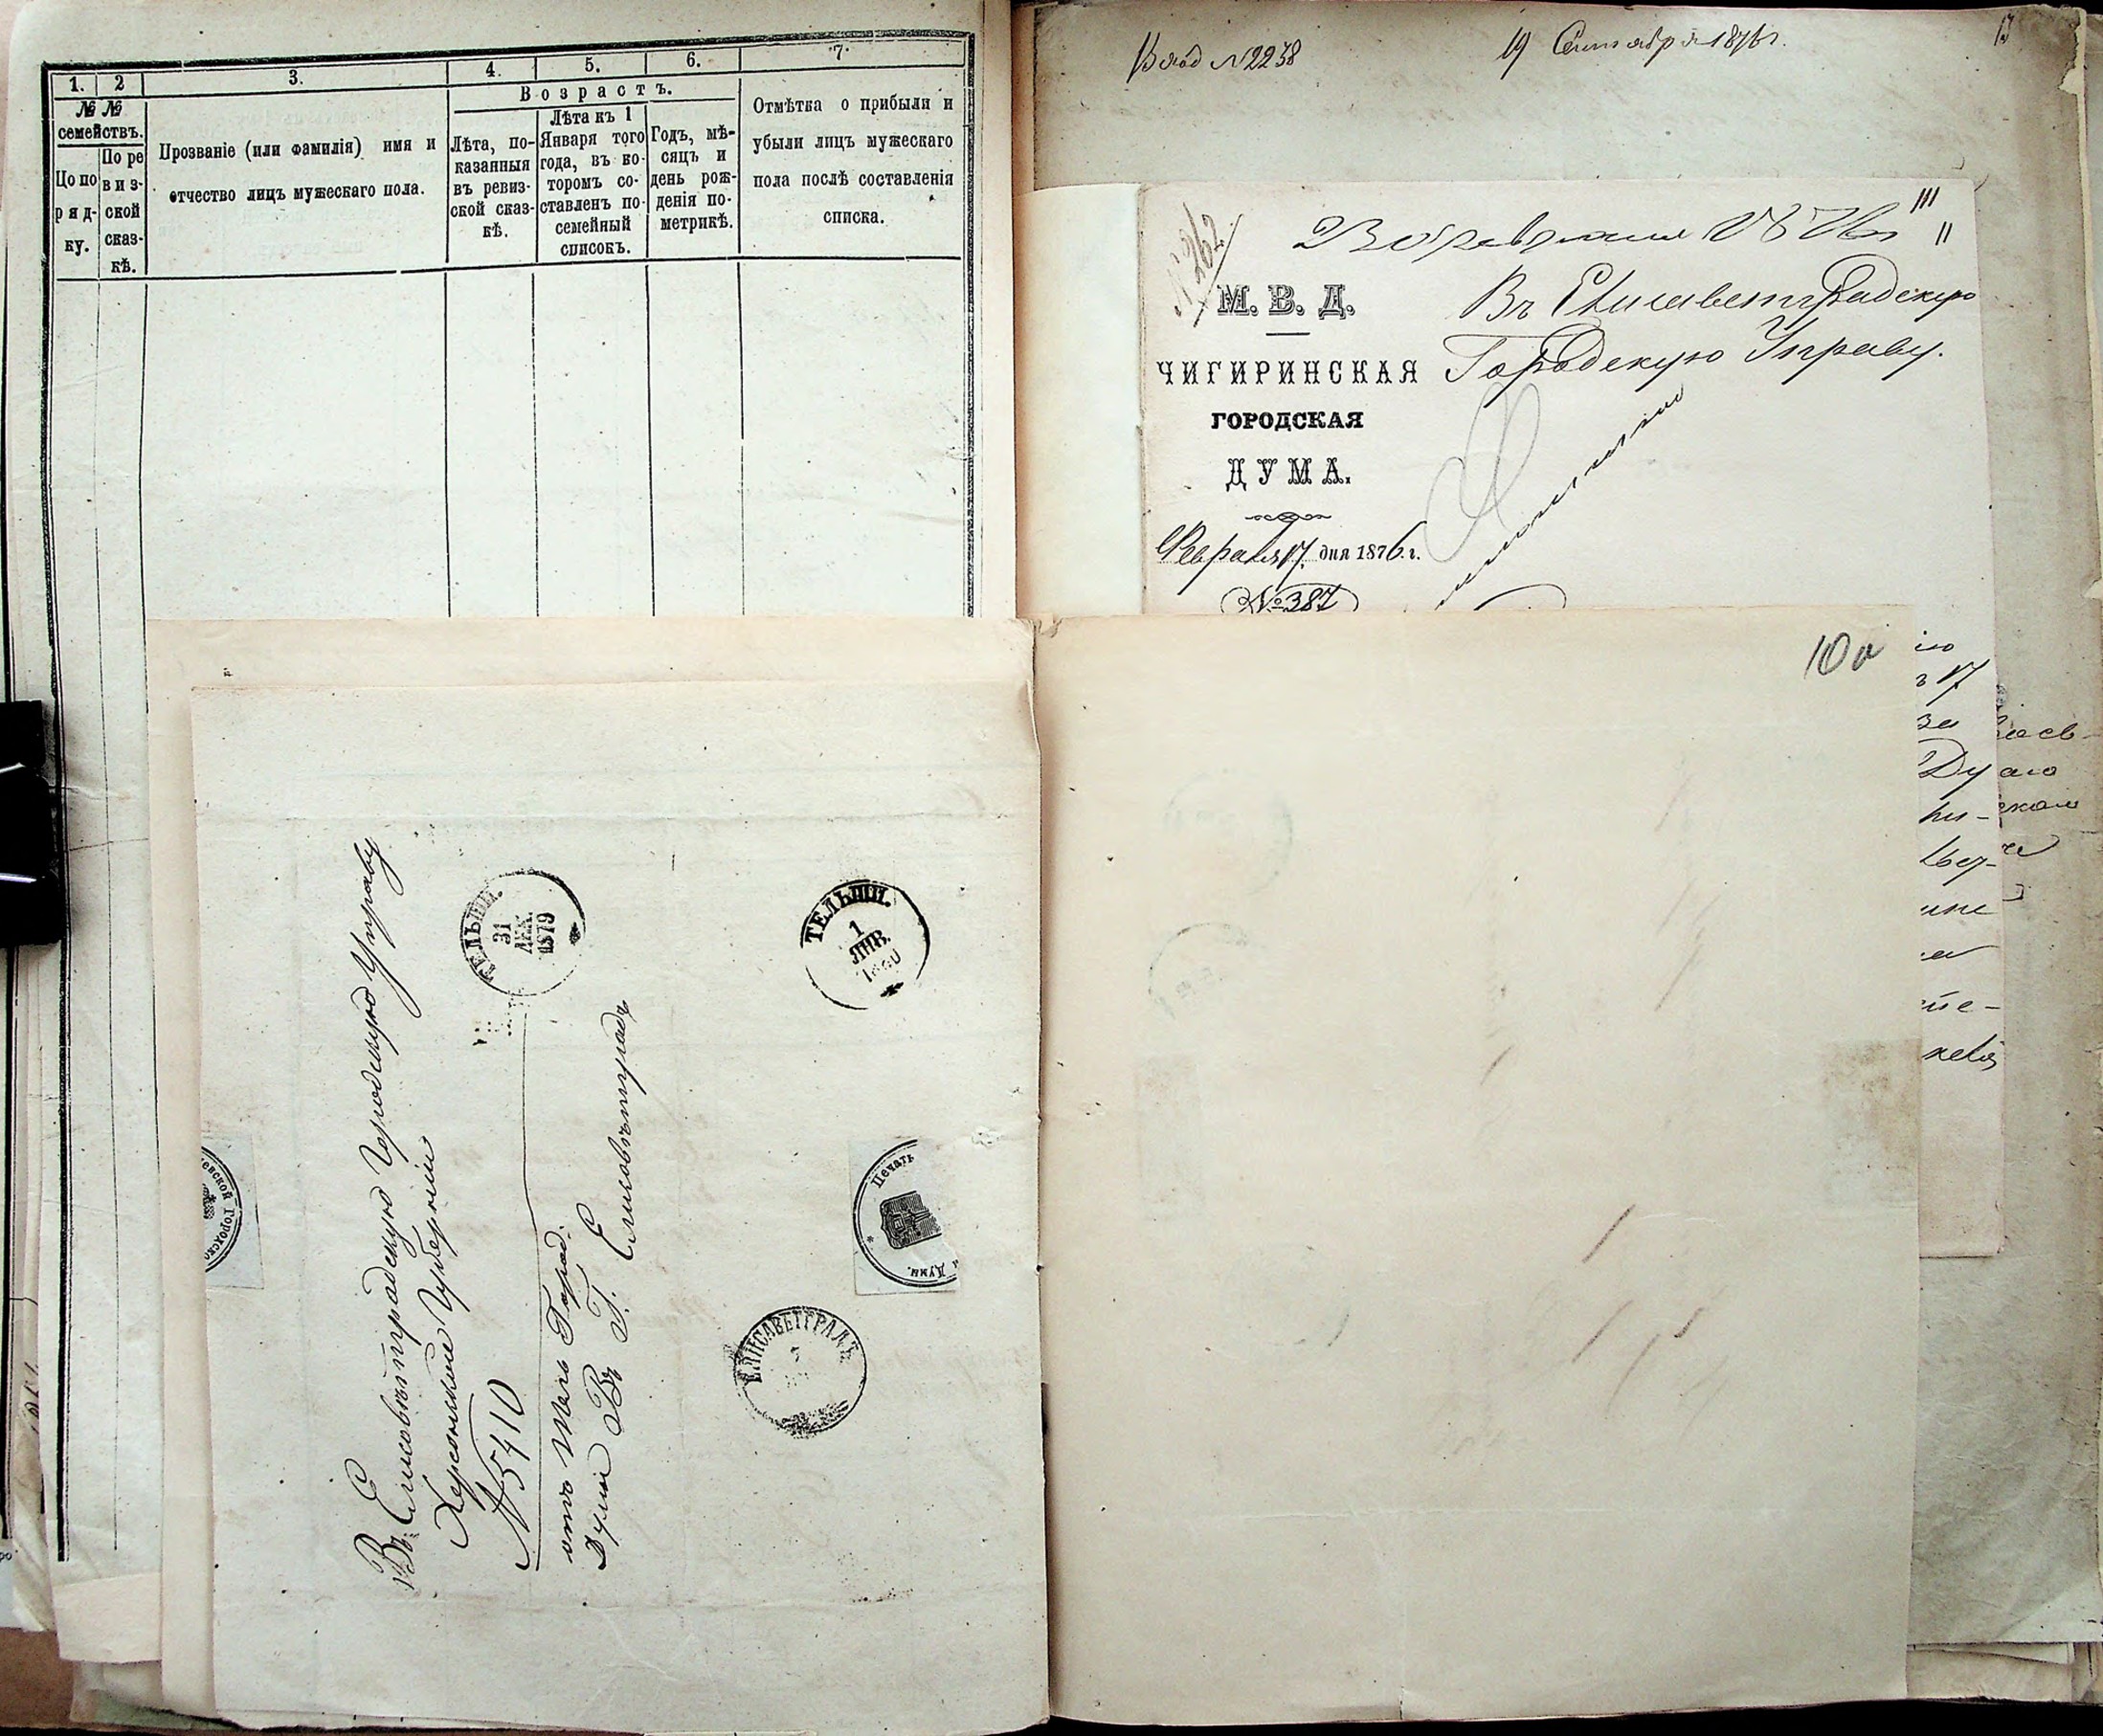 1. 2 3. 4. 5. 6. 7.
№ №
семействъ.
По по
ряд-
ку.
По ре
виз-
ской
сказ-
кѣ.
Прозваніе (или фамилія) имя и
отчество лицъ мужескаго пола.
Возрастъ.
Лѣта, по-
казанныя
въ ревиз-
ской сказ-
кѣ.
Лѣта къ 1
Января того
года, въ ко-
торомъ со-
ставленъ по-
семейный
списокъ.
Годъ, мѣ-
сяцъ и
день рож-
денія по-
метрикѣ.
Отмѣтка о прибыли и
убыли лицъ мужескаго
пола послѣ составленія
списка.
Вход №2238
19 Сентября 1876 г.
13
№ 262
23 Февраля 1876
11
М. В. Д.
ЧИГИРИНСКАЯ
ГОРОДСКАЯ
ДУМА.
Февраля 17 дня 1876 г.
№ 387
Въ Елисаветградскую
Городскую Управу.
10а
Въ Елисоветградскую Городскую Управу
Херсонской Губерніи
№ 5410
отъ Тель Город.
Думы Въ Г. Елисоветградъ
ТЕЛЬШИ.
31
ДЕК.
1879
ТЕЛЬШИ.
1
ЯНВ.
1880
евской Городско
Печать
Думы.
ЕЛИСАВЕТГРАДЪ
7